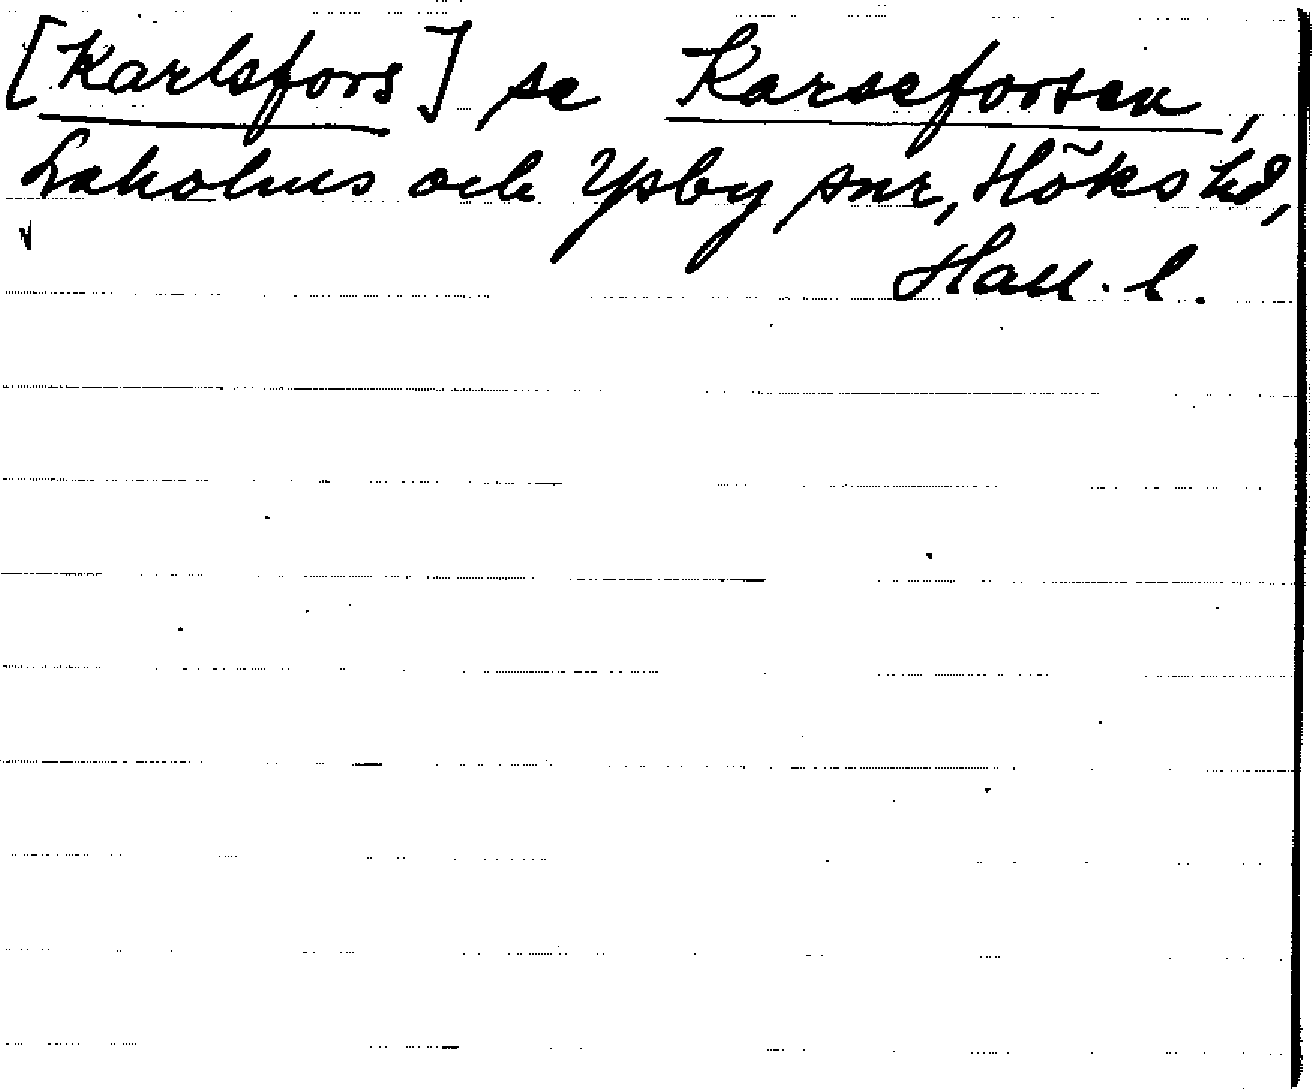 [Karlsfors] se Karseforsen,
Laholms och Ysby snr, Höks hd,
v
Hall. l.